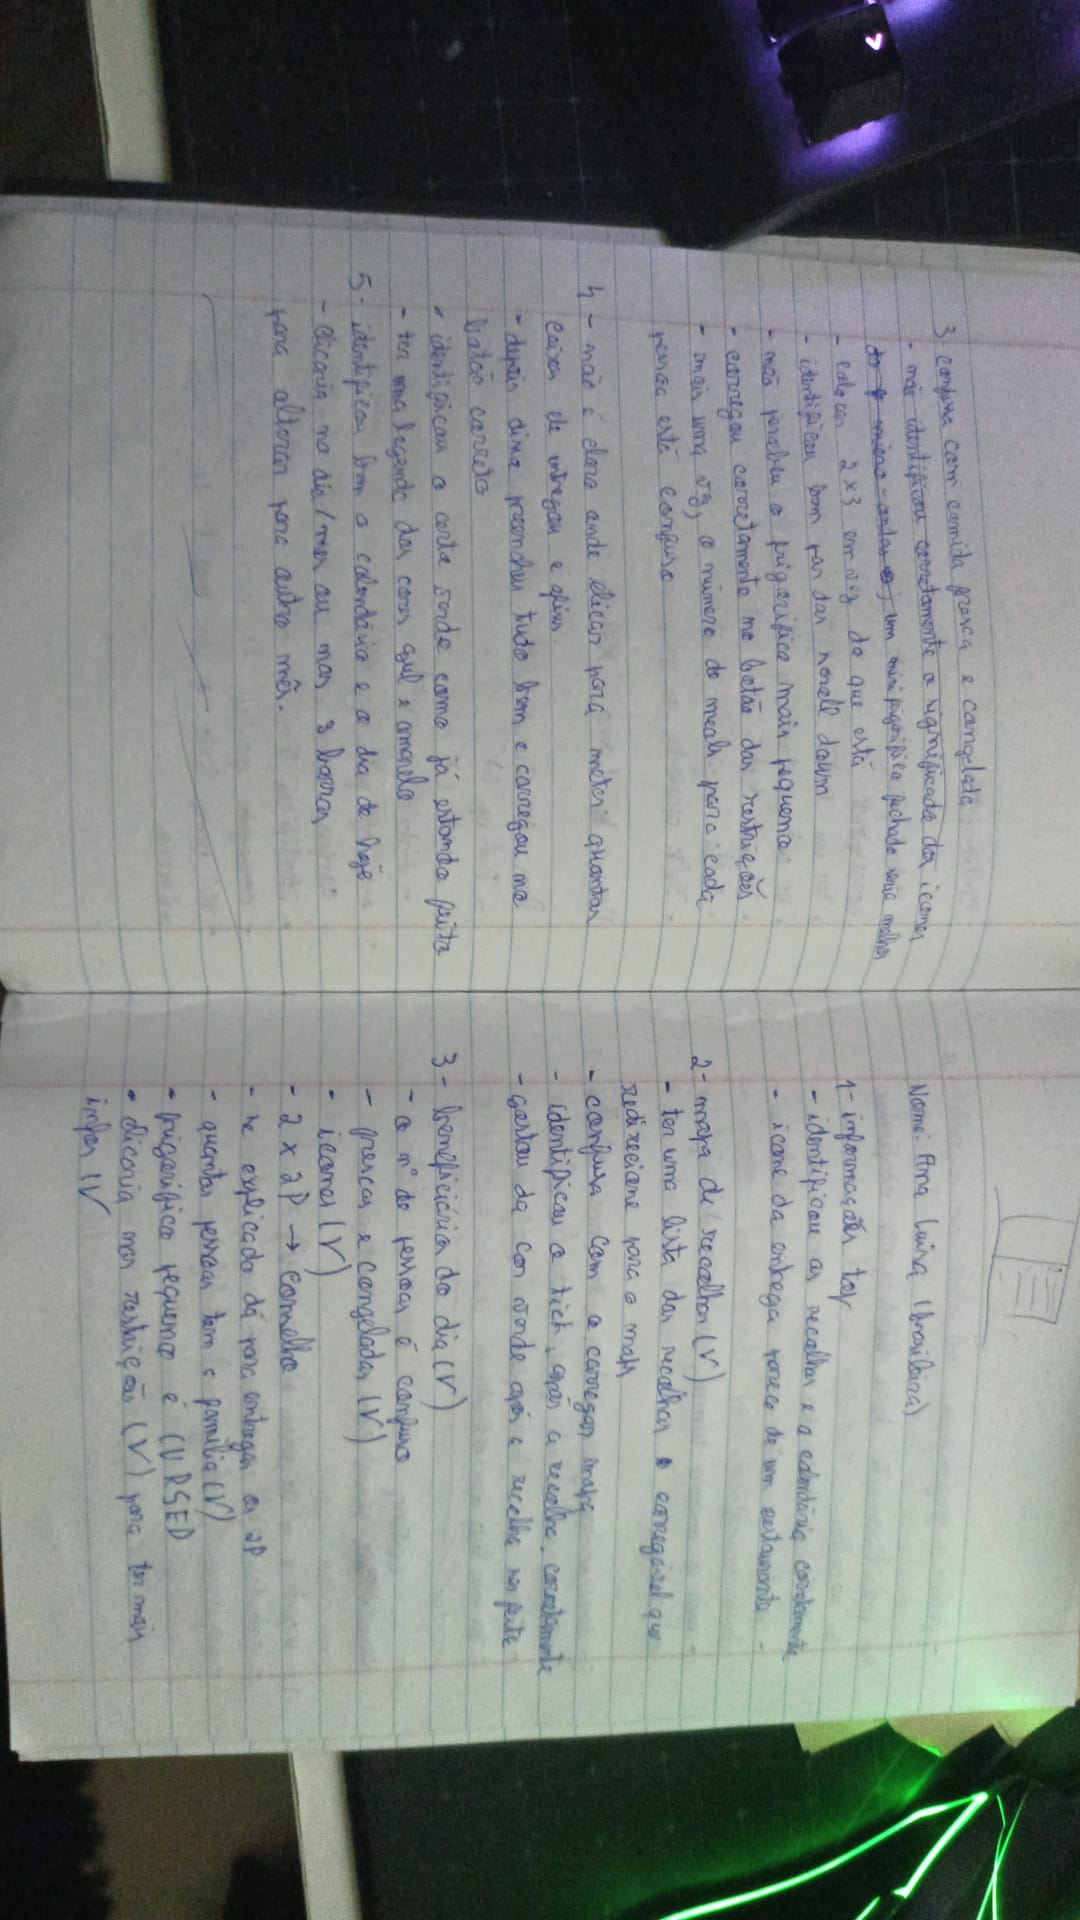 3 confusa com comida fresca e congelada
- não identificou corretamente o significado dos icones
um mini frigorifico fechado seria melhor
- colocar 2x3 em vez do que está
- identificou bem par das scroll down
- não percebeu o frigorifico mais pequeno
- carregou corretamente no botão das restrições
- mais uma vez, o número de meals para cada
pessoa está confuso
4 - não é claro onde clicar para meter quantas
caixas ele entregou e
- depois disso preencheu tudo bem e carregou no
botão correto
- identificou o corta verde como já estando feita
- ter uma legenda das cores azul e amarelo
5 - identificou bem o calendário e o dia de hoje
- clicaria no dia/mes ou nas 3 barras
para alterar para outro mês.
Nome: Ana Luisa (brasileira)
1 - informações top
- identificou as recolhas e o calendário corretamente
- icone da entrega parece de um restaurante
2 - mapa de recolhas (V)
- ter uma lista das recolhas e carregável que
redirecione para o mapa
- confusa com o carregar mapa
- identificou o tick, após a recolha, corretamente
- gostou da cor verde após a recolha ser feita
3 - beneficiários do dia (V)
- o nº de pessoas é confuso
- frescas e congeladas (V)
- icones (V)
- 2 x 2P → conselho
- se explicado dá para entregar os 2P
- quantas pessoas tem a familia (V)
- frigorifico pequeno é CURSED
- clicaria nas restrições (V) para ter mais
infos (V